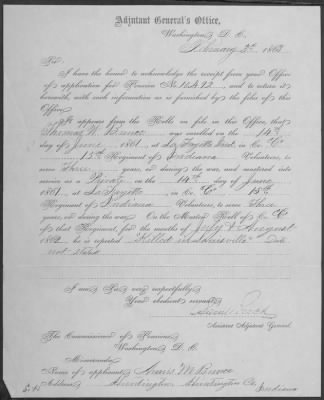 Adjutant General's Office,
Washington, D. C.
February 2d 1863
Sir:
I have the honor to acknowledge the receipt from your Office
of application for Pension No. 10.412, and to return it
herewith, with such information as is furnished by the files of this
Office.
It appears from the Rolls on file in this Office, that
Thomas W. Bunce was enrolled on the 14th
day of June 1861, at La Fayette Ind., in Co. "C"
15th Regiment of Indiana Volunteers, to
serve Three years, or during the war, and mustered into
service as a Private on the 14th day of June
1861, at La Fayette, in Co. "C" 15th
Regiment of Indiana Volunteers, to serve Three
years, or during the war. On the Muster Roll of Co. "C"
of that Regiment, for the months of July & August
1862, he is reported "Killed in Date
not stated
I am, Sir, very respectfully,
Your obedient servant,
Assistant Adjutant General.
The Commissioner of Pensions,
Washington, D. C.
Memoranda.
Name of applicant, M. Bunce
Address, Huntington, Huntington Co. Indiana